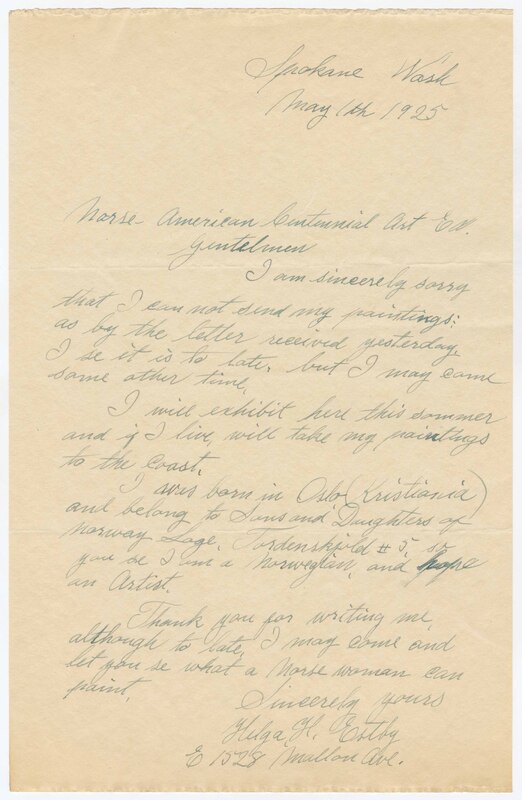 Spokane Wash
May 1th 1925
Norse-American Centennial Art Ex.
Gentelmen
I am sincerely sorry
that I can not send my paintings;
as by the letter received yesterday,
I se it is to late, but I may come
some other time.
I will exhibit here this sommer
and if I live, will take my paintings
to the coast.
I was born in Oslo (Kristiania)
and belong to Sons and Daughters of
Norway Loge, Tordenskjold # 5, so
you se I am a Norwegian, and hope
an Artist.
Thank you for writing me,
although to late, I may come and
let you se what a Norse woman can
paint.
Sincerely yours
Helga H. Estby
E 1528 Mallon Ave.